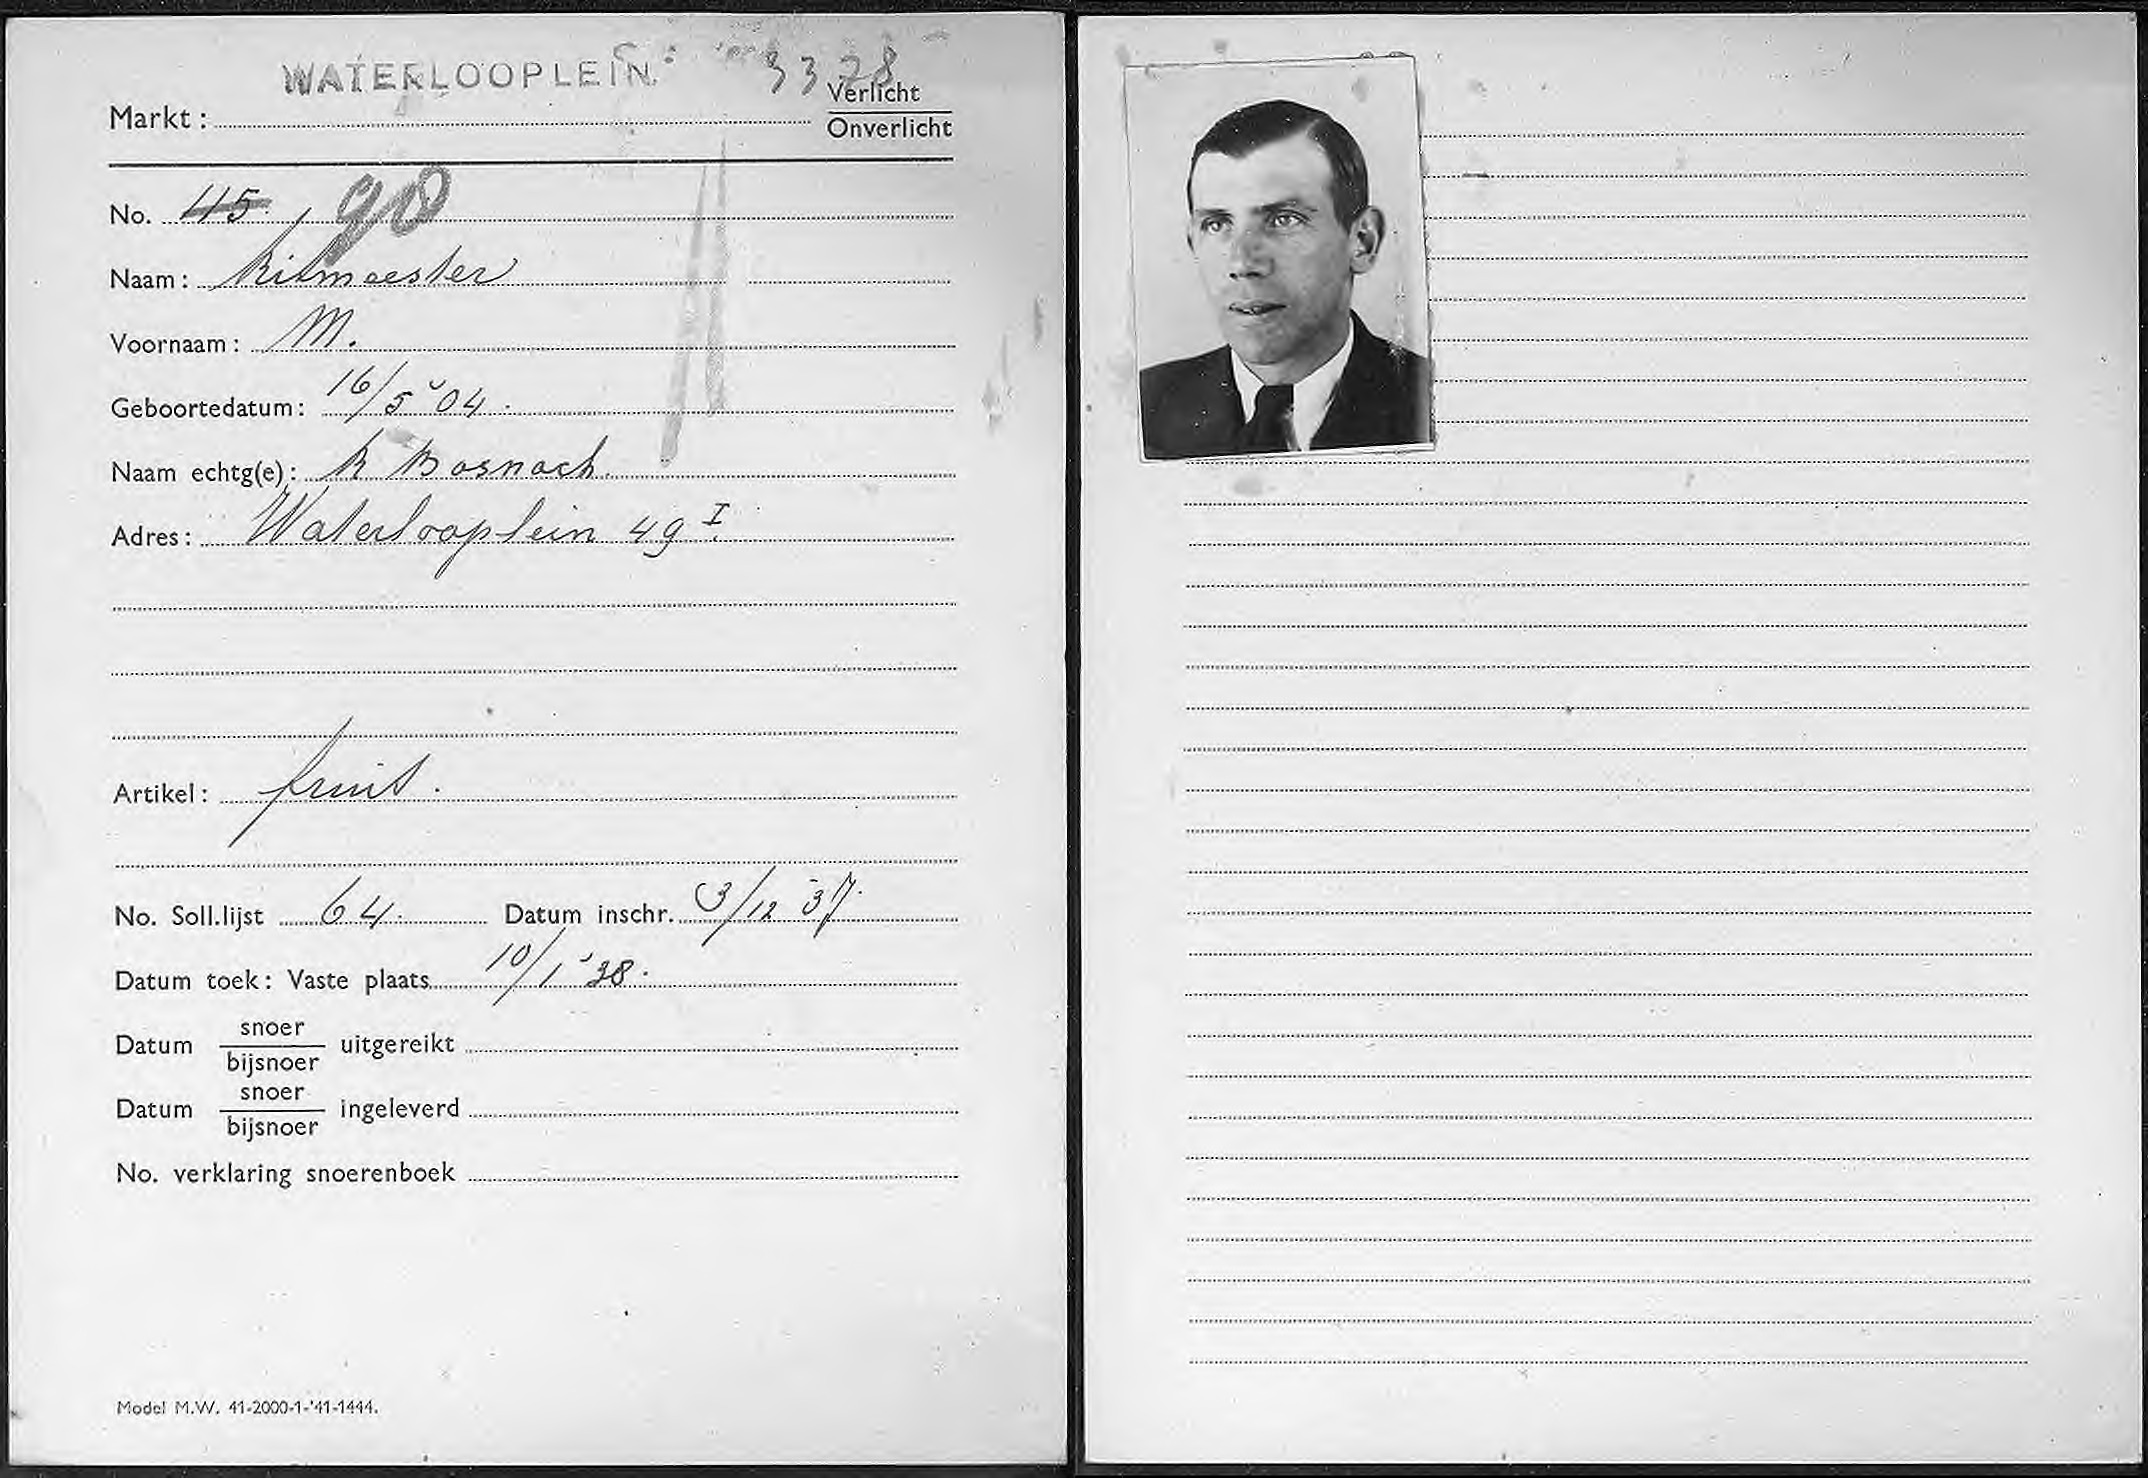 WATERLOOPLEIN. 3378
Markt: Verlicht
Onverlicht
No. 45. 98
Naam: Ritmeester
Voornaam: M.
Geboortedatum: 16/5 '04.
Naam echtg(e): R Bosnach.
Adres: Waterlooplein 49 I.
Artikel: fruit.
No. Soll.lijst 64. Datum inschr. 3/12 '37.
Datum toek: Vaste plaats 10/1 '38.
Datum snoer/bijsnoer uitgereikt
Datum snoer/bijsnoer ingeleverd
No. verklaring snoerenboek
Model M.W. 41-2000-1-'41-1444.